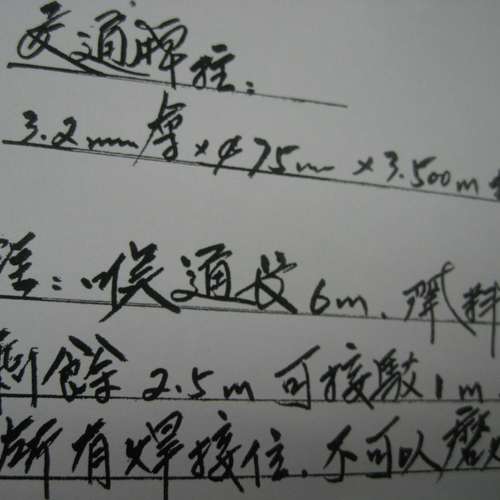 交通牌柱:
3.2mm厚×φ75mm×3.500m
注:喉通長6m.
剩餘2.5m可接駁1m
所有焊接位.不可以磨